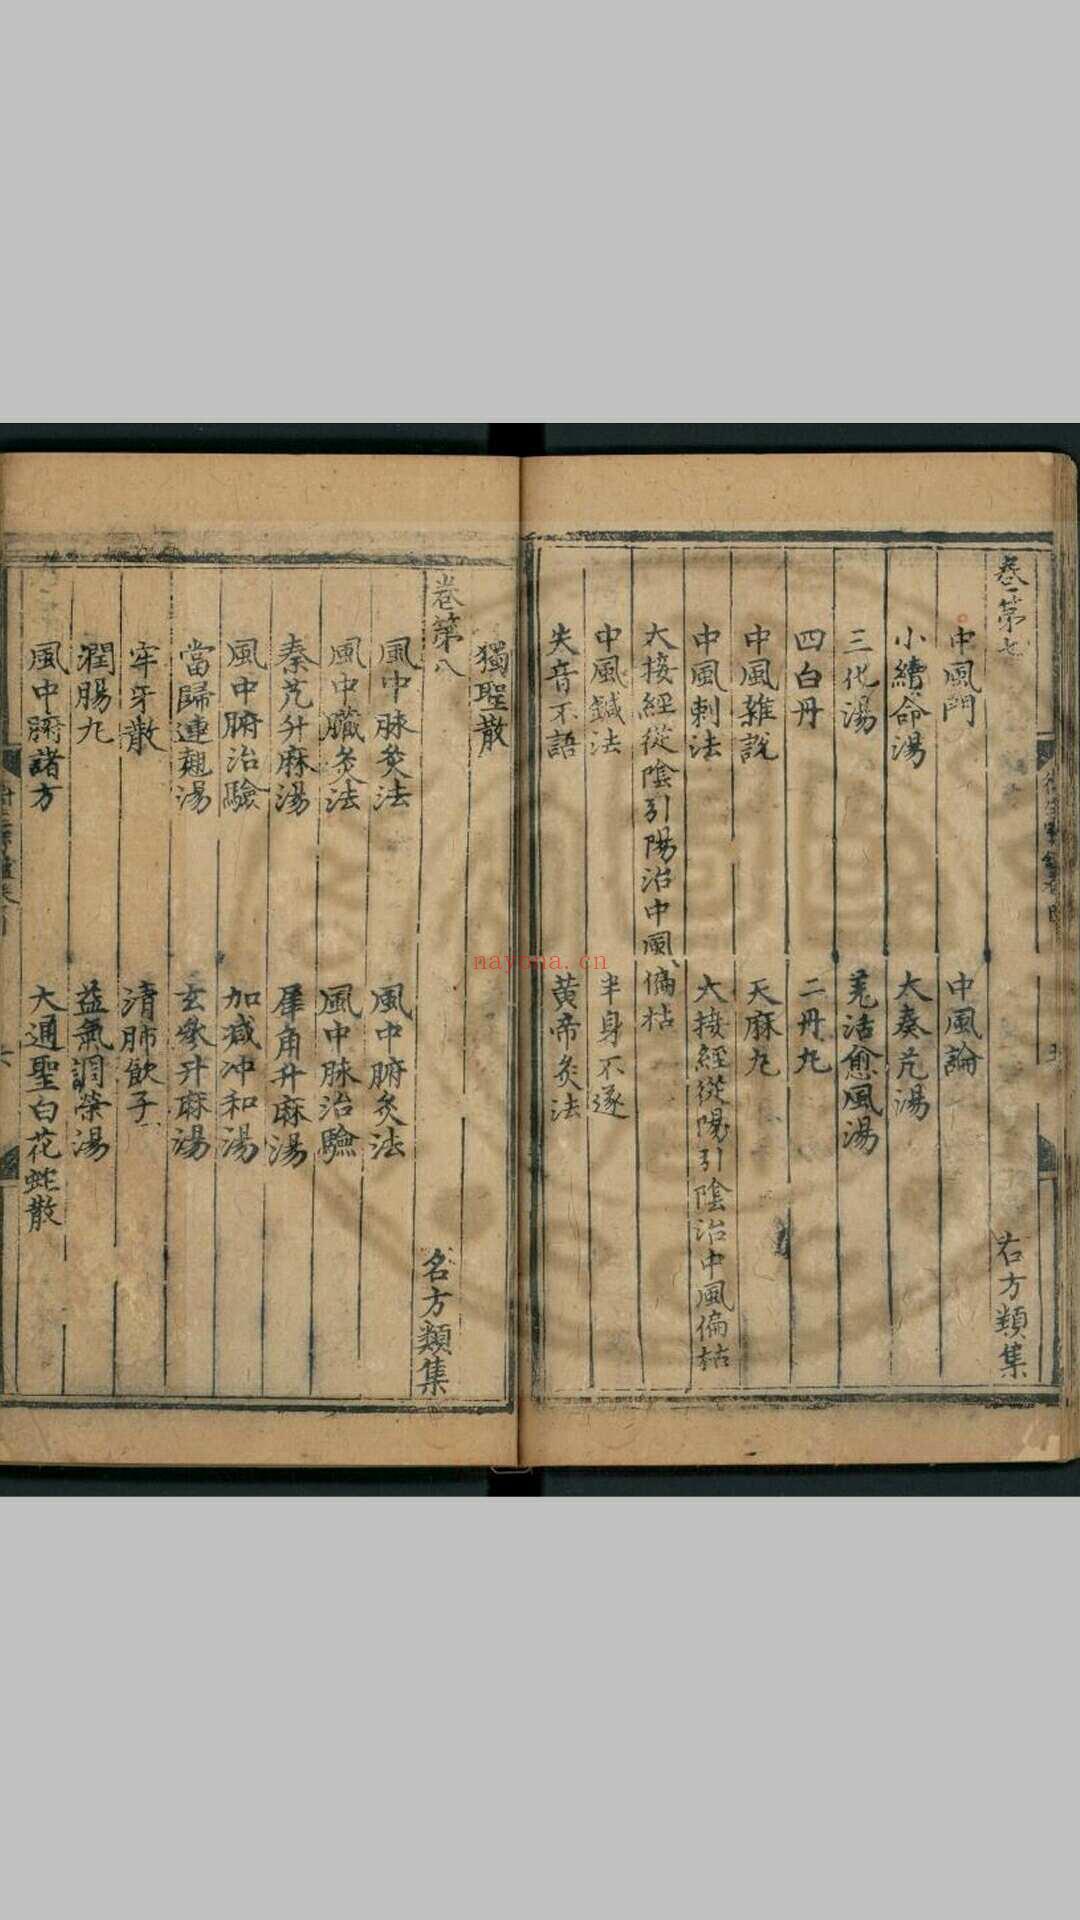 卷第七 名方類集
中風門 中風論
小續命湯 大秦艽湯
三化湯 羌活愈風湯
四白丹 二丹丸
中風雜說 天麻丸
中風刺法 大接經從陽引陰治中風偏枯
大接經從陰引陽治中風偏枯
中風鍼法 半身不遂
失音不語 黄帝灸法
獨聖散
卷第八 名方類集
風中脉灸法 風中腑灸法
風中臟灸法 風中脉治驗
秦艽升麻湯 犀角升麻湯
風中腑治驗 加减冲和湯
當歸連翹湯 玄參升麻湯
牢牙散 清肺飲子
潤腸丸 益氣調榮湯
風中腑諸方 大通聖白花蛇散
nayona.cn